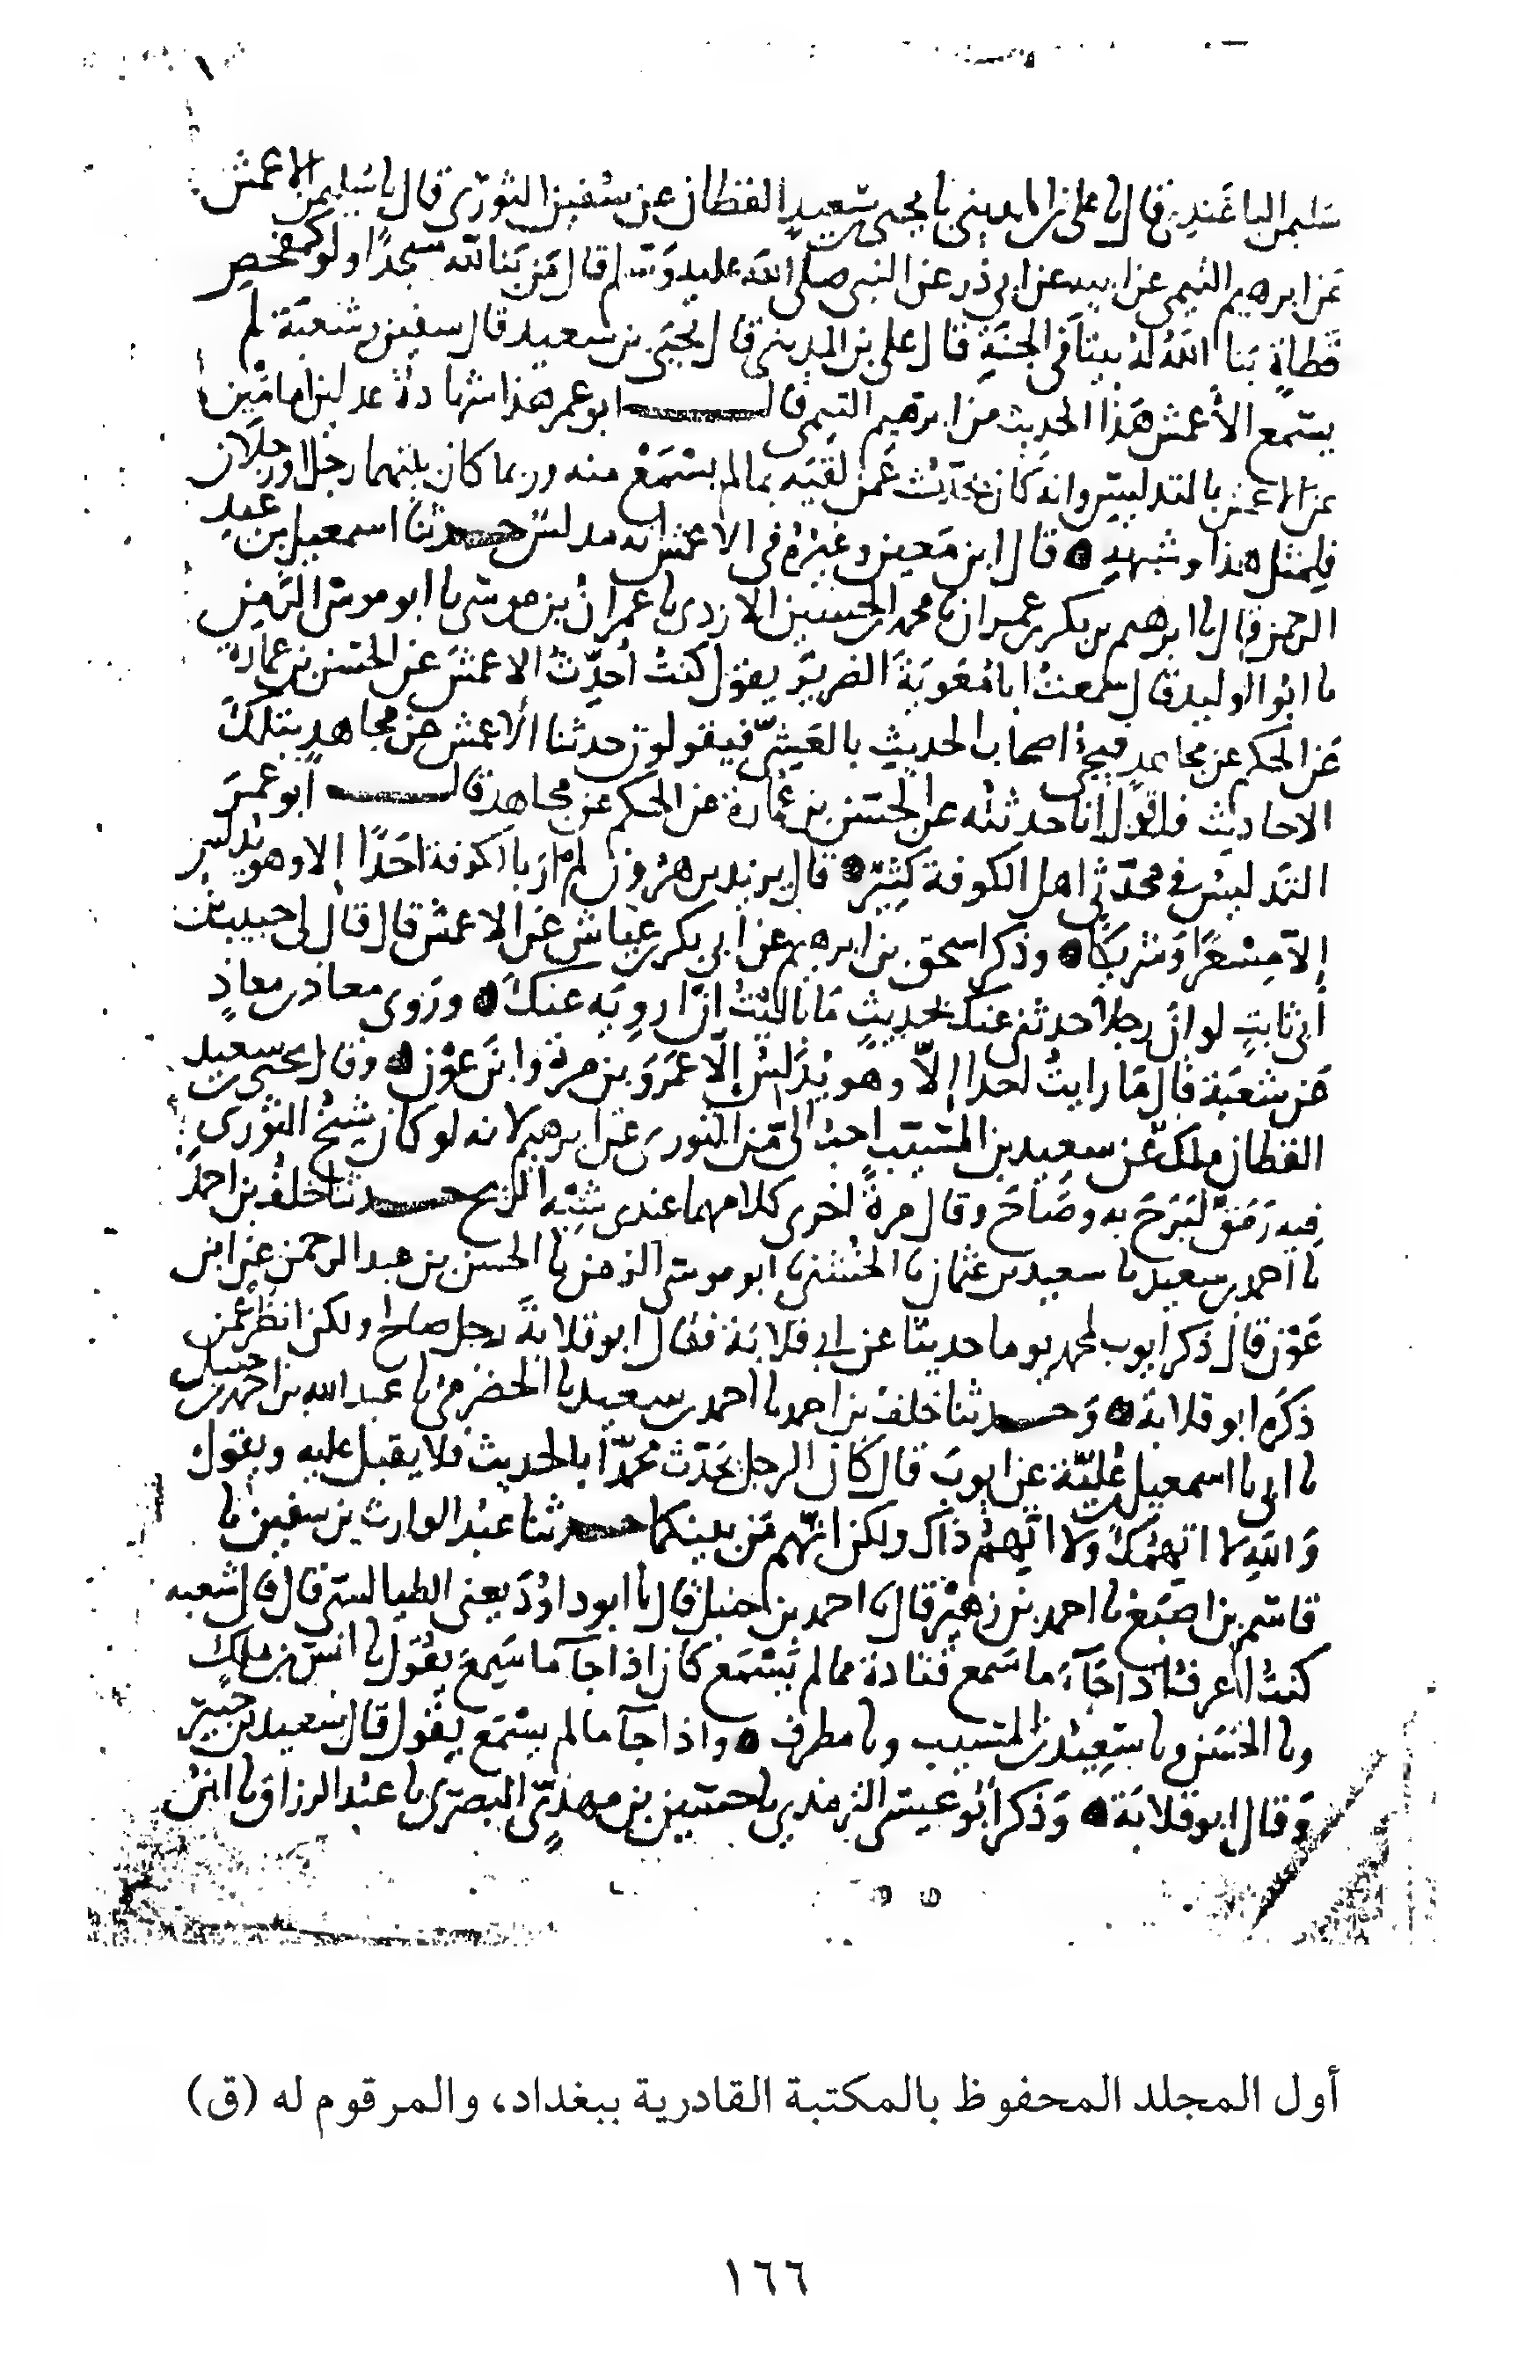 سليمن الباغندي قال نا علي بن المديني نا يحيى بن سعيد القطان عن سفين الثوري قال نا سليمن الاعمش
عن ابرهيم التيمي عن ابيه عن ابي ذر عن النبي صلى الله عليه وسلم قال من بنا لله مسجدا ولو كمفحص
قطاة بنا الله له بيتا في الجنة قال علي بن المديني قال يحيى بن سعيد قال سفين وشعبة لم
يسمع الأعمش هذا الحديث من ابرهيم التيمي قال ابو عمر هذا شهادة عدلين امامين
عن الاعمش بالتدليس وانه كان يحدث عمن لقيه بما لم يسمع منه وربما كان بينهما رجل او رجلان
فلمثل هذا وشبهه ه قال ابن معين وغيره في الاعمش انه مدلس حدثنا اسمعيل بن عبد
الرحمن قال نا ابرهيم بن بكر بن عمران نا محمد بن الحسين الازدي نا عمران بن موسى نا ابو موسى الزمن
نا ابو الوليد قال سمعت ابا معوية الضرير يقول كنت أحدث الاعمش عن الحسن بن عمارة
عن الحكم عن مجاهد فيجئ اصحاب الحديث بالعشي فيقولون حدثنا الأعمش عن مجاهد بتلك
الاحاديث فاقول انا حدثته عن الحسن بن عمارة عن الحكم عن مجاهد قال ابو عمر
التدليس في محدثي اهل الكوفة كثير ه قال يزيد بن هرون لم ار بالكوفة احدا الا وهو يدلس
إلا مسعرا وشريكا ه وذكر اسحق بن ابرهيم عن ابي بكر بن عياش عن الاعمش قال قال لي حبيب بن
أبي ثابت لو ان رجلا حدثني عنك بحديث ما باليت ان ارويه عنك ه وروى معاذ بن معاذ
عن شعبة قال ما رايت احدا إلا وهو يدلس إلا عمرو بن مرة وابن عون ه وقال يحيى بن سعيد
القطان ملك عن سعيد بن المسيب احب الي من الثوري عن ابرهيم لانه لو كان شيخ الثوري
فيه رمق لبرح به وصاح وقال مرة اخرى كلامهما عندي شبه الريح حدثنا خلف بن احمد
نا احمد بن سعيد نا سعيد بن عثمان نا الخشني نا ابو موسى الزمن نا الحسن بن عبد الرحمن عن ابن
عون قال ذكر أيوب لمحمد يوما حديثا عن ابي قلابة فقال ابو قلابة رجل صالح ولكن انظر عمن
ذكره ابو قلابة ه وحدثنا خلف بن احمد نا احمد بن سعيد نا الحضرمي نا عبد الله بن احمد بن حنبل
نا ابي نا اسمعيل بن علية عن ايوب قال كان الرجل يحدث محمدا بالحديث فلا يقبل عليه ويقول
والله لا اتهمك ولا اتهم ذاك ولكن اتهم من بينكما حدثنا عبد الوارث بن سفين نا
قاسم بن اصبغ نا احمد بن زهير قال نا احمد بن حنبل قال نا ابو داود يعني الطيالسي قال قال شعبه
كنت اعرف اذا جاء ما سمع قتادة مما لم يسمع كان اذا جآ ما سمع يقول نا انس بن ملك
ونا الحسن ونا سعيد بن المسيب ونا مطرف ه واذا جآ ما لم يسمع يقول قال سعيد بن جبير
وقال ابو قلابة ه وذكر أبو عيسى الترمذي نا حسين بن مهدي البصري نا عبد الرزاق نا ابن
أول المجلد المحفوظ بالمكتبة القادرية ببغداد، والمرقوم له (ق)
١٦٦